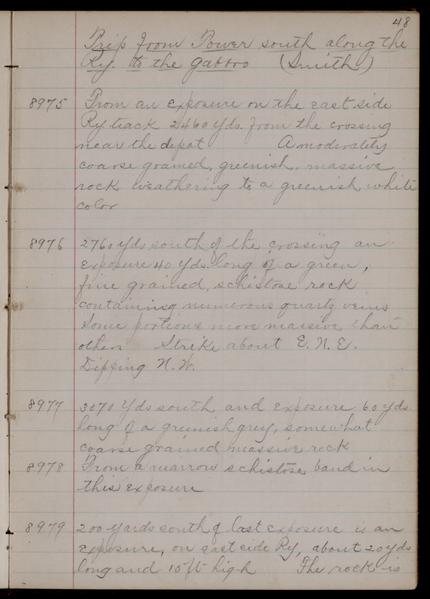 48
Trip from Power south along the
Ry. to the gabbro (Smith)
8975 From an exposure on the east side
Ry track 2460 yds. from the crossing
near the depot A moderately
coarse grained, greenish, massive
rock weathering to a greenish white
color
8976 2760 yds south of the crossing an
exposure 40 yds. long of a green,
fine grained, schistose rock
containing numerous quartz veins
Some portions more massive than
other Strike about E. N. E.
Dipping N. W.
8977 3070 yds south and exposure 60 yds
long of a greenish grey, somewhat
coarse grained massive rock
8978 From a narrow schistose band in
this exposure
8979 200 yards south of last exposure is an
exposure, on east side Ry, about 20 yds
long and 15 ft high The rock is